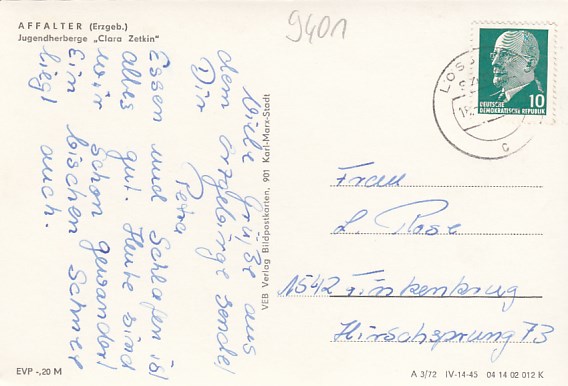 AFFALTER (Erzgeb.)
Jugendherberge „Clara Zetkin"
9401
Viele Grüße aus
dem Erzgebirge sendet
Dir Petra
Essen und Schlafen ist
alles gut. Heute sind
wir schon gewandert
Ein bischen Schnee
liegt auch.
VEB Verlag Bildpostkarten, 901 Karl-Marx-Stadt
DEUTSCHE
DEMOKRATISCHE REPUBLIK
10
c
Frau
L. Rose
1542 Finkenkrug
Hirschsprung 73
EVP -,20 M
A 3/72 IV-14-45 04 14 02 012 K